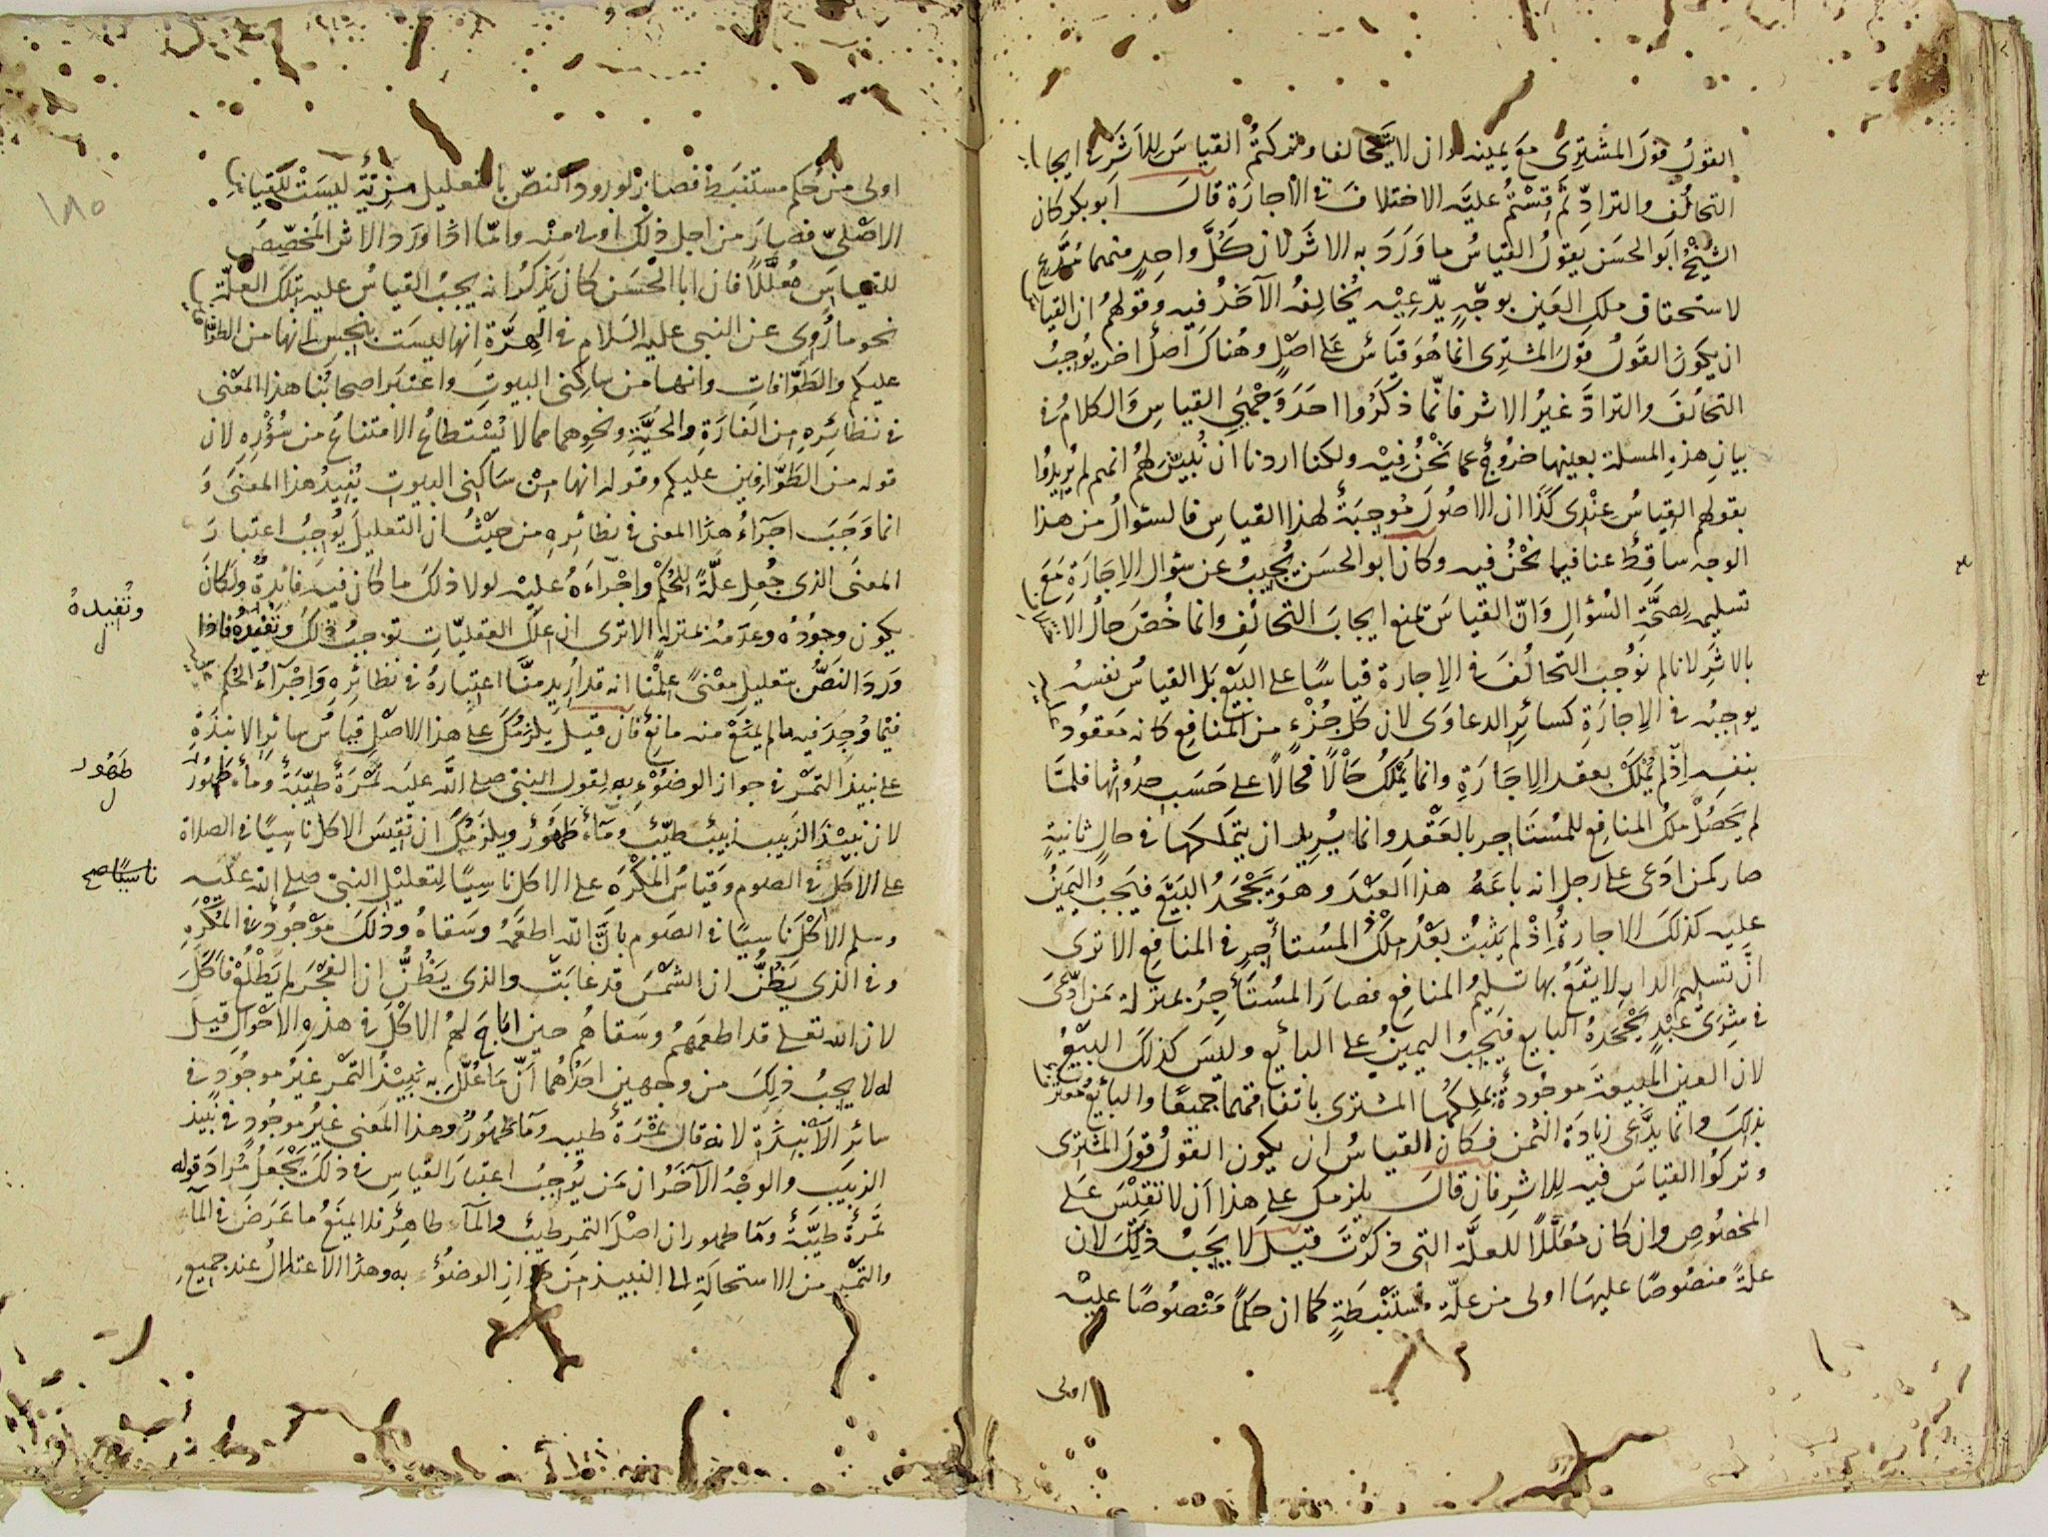 القولُ قولَ المشتَرِى مَعَ يمينه وان لا يتَحَالفا وتركتمُ القياسَ لِلاَثَرِ فى ايجاب
التحالُف والترادّ ثم قِسْتُم عليَه الاختلافَ فى الاجارَة قالَ ابو بكر كان
الشيْخُ ابَو الحسَن يقولُ القياسُ ما وَرَدَ به الاثَر لان كُلَّ واحِدٍ منهما مُدَّعٍ
لاستحقاق ملكِ العَين بوجْهٍ يدّعِيْه يُخالِفُ الآخَرُ فيه وقولهُم ان القياسَ
ان يكونَ القَولُ قولَ المشترِى انما هُوَ قيَاسٌ عَلى اصْلٍ وهُناكَ اَصلٌ اخر يُوجبُ
التحالُفَ والترادَّ غيرُ الاثر فانّما ذكَرُوا احَدَ وَجْهَىِ القياسِ وَالكلامُ فى
بيانِ هذهِ المسئلة بعينِها خروُجٌ عما نحْنُ فِيْه ولكنا اردنا اَنْ نُبيّنَ لهُم انهم لم يُريدُوا
بقولهم القِياسُ عنْدى كَذَا ان الاصُولَ مُوجِبَةٌ لهذا القياسِ فالسؤالُ من هذا
الوجه ساقِطٌ عنا فيما نحْنُ فيه وكانَ ابو الحسَن يُجيبُ عن سؤال الاِجَارَةِ مَعَ
تسليمِه لِصحَّةِ السُؤالِ وَانّ القياسَ يمنع ايجابَ التحالُفِ وانما خُصَّ حالُ الاتِّباعِ
بالاثَرِ لانا لم نوُجب التحالُفَ فى الاِجارة قياسًا على البَيْع بَل القياسُ نفسُه
يوجبُه فى الاِجارَةِ كسائِرِ الدعاوَى لان كل جُزْءٍ من المنَافِع كانه مَعقُودٌ عليه
بنفسِه اِذْ لم يُمْلَكْ بعقدِ الاِجَارَةِ وانما يُمْلَكُ حَالًا فحالًا على حَسَبِ حدُوثِها فلمّا
لم يَحصُلْ ملكُ المنافِعِ للمُسْتَاجرِ بالعَقْدِ وانما يُريد ان يتمَلكَها فى حالٍ ثانيةٍ
صار كمن ادَعى على رجل انه باعَهُ هذا العَبْدَ وهوَ يَجْحَدُ البَيْعَ فيَجبُ اليَمِيْنُ
عليه كذلكَ الاجارةُ اِذْ لم يَثبُتْ بَعْدُ مِلْكُ المُستأجِرِ فى المنَافِعِ الا ترى
انَّ تسليم الدارِ لا يَقَعُ بها تسليمُ المنافِعِ فصارَ المُستَأجِرُ بمنزلة مَن ادّعَى
فى شِرَى عَبْدٍ يَجْحَدُهُ البايع فيَجبُ اليمينُ على البائِع وليسَ كذلكَ البَيْعُ
لان العينَ المَبِيعَةَ موجُودةٌ يملِكُها المشترى باتفاقهما جميعًا والبائعُ معترفٌ
بذلكَ وانما يدَّعِى زيادَة الثمن فكان القياسُ ان يكون القولُ قولَ المشترِى
وتركُوا القياسَ فيه للاثرِ فان قالَ يلزمكَ على هذا اَن لا تقِيْسَ عَلى
المخصُوصِ وان كان مُعَلَّلًا للعلَّة التى ذكَرْتَ قيلَ لا يَجبُ ذلِكَ لان
علةً منصُوصًا عليهَا اولى من علّة مُسْتَنْبطَةٍ كما ان حكمًا مَنْصُوصًا عليْه
اولى
١٨٥
اولى من حُكمٍ مستنبَطٍ فصار لورود النصّ بالتعليل مَزِيّةٌ ليسَتْ للقِياسِ
الاصْلىّ فصارَ من اجل ذلكَ اولى منْه وامّا اذا ورَدَ الاثر المُخصِّصُ
للقياسَ مُعلَّلًا فان ابا الحسَن كان يَذكرُ انه يجبُ القياسُ عليه بتلكَ العلّة
نحو ما رُوِى عن النبى عليه السَلام فى الهِرَّة انها ليسَت بنجسٍ انها من الطوّافين
عليكم والطَوَّافاتِ وانها من ساكِنى البيوتِ واعتبر اصحابُنا هذا المعنى
فى نظائِرِهِ من الفَارَةِ والحَيَّةِ ونحوِهما مما لا يُسْتطاعُ الامتناعُ من سُؤْرِهِ لان
قوله من الطَوَّافِيْن عليكم وقوله انها مِنْ سَاكِنى البيوتِ يُفيدُ هذا المعنى وَ
انما وَجَبَ اجرَاءُ هذا المعنى فى نظائِرِهِ من حَيْثُ ان التعليلَ يُوجبُ اعتبارَ
المعنَى الذى جُعِل علَّةً للحُكم واِجْراءَهُ عليْه لولا ذلكَ ما كان فيه فائدةٌ ولكانَ
يكون وجُودُه وعدَمُه بمنزلةٍ الا ترى ان عِلَلَ العقليّاتِ توجبُ ذلكَ وتفيدُه فاذا
وتُفيدهُ
وَرَدَ النَصُّ بتعليلِ معْنىً علِمْنا انه قد اُريد منَّا اعتِبارُهُ فى نظائرِهِ وَاِجْرَاءُ الحُكم عليه
فيما وُجِدَ فيه ما لم يمنَعْ منه مانِعٌ فان قيلَ يلزمُكَ على هذا الاصْلِ قياسُ سائرِ الانبذةِ
على نبيذ التَمْر فى جواز الوضُوْءِ به لقول النبىّ صلى الله عليه تَمْرَةٌ طيّبَةٌ ومآءٌ طَهُورٌ
طهُور
لان نبيْذَ الزَبيبِ زبيبٌ طيِّبٌ ومآءٌ طَهُورٌ ويلزَمُكَ ان تقِيسَ الاكل ناسِيًا فى الصلاة
على الاَكْلِ فى الصوم وقيَاسُ المُكْرَهِ على الاكل ناسِيًا لتعليْلِ النبىّ صلى الله عليه
ناسيًا صح
وسلم الاكْلَ نَاسِيًا فى الصَوم بانّ الله اطعَمَهُ وسَقاهُ وذلكَ موْجُودٌ فى المُكْرَهِ
وفى الذى يَظُنُّ ان الشمْسَ قد غابَتْ والذى يَظُنُّ ان الفَجْرَ لم يَطْلُعْ فاَكَلَ
لان الله تعلى قد اطعَمَهُم وسَقاهُم حينَ اباحَ لهُم الاكْلَ فى هذهِ الاحْوَالِ قيلَ
له لا يجبُ ذلِكَ من وجهينِ احَدُهُما انّ مَا عُلِّلَ به نبيْذُ التَمْر غيرُ موجوُدٍ فى
سائر الاَنْبِذَةِ لانه قال تمْرَةٌ طيبه ومَاءٌ طهُورٌ وهذا المعنى غيرُ موجُودٍ فى نبيذ
الزبيَب والوجْهُ الاخَرُ ان مَن يُوجِبُ اعتبارَ القياس فى ذلكَ يَجْعَلُ مُرادَ قوله
تَمرةٌ طيّبَةٌ ومَا طهور ان اصْلَ التَمرِ طيّبٌ والمآء طاهِرٌ فلا يَمنَعُ ما عَرَضَ فى المآء
والتمْر من الاستحالَةِ الى النبيذ من جَوازِ الوضُوْء به وهذا الاعتلالُ عند جميعِ